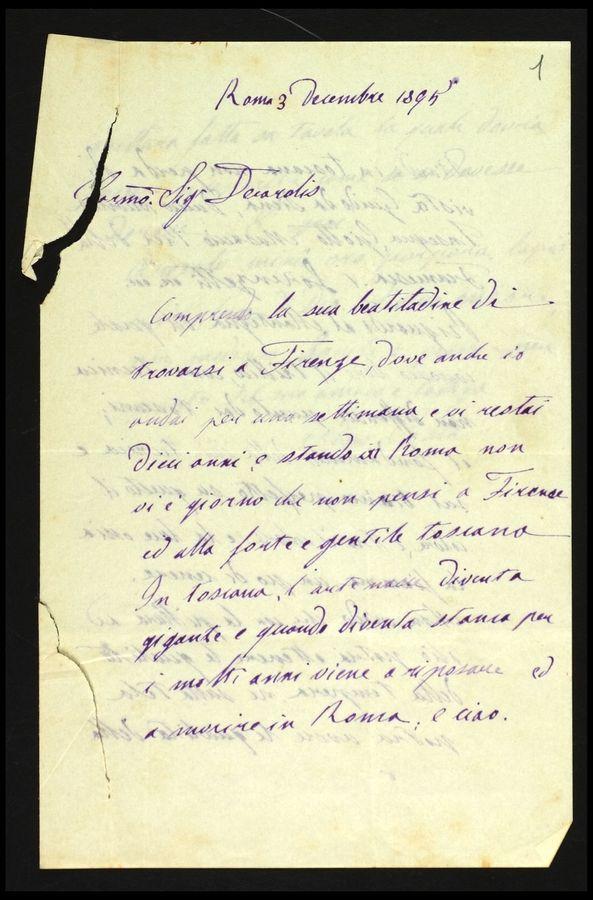 1
Roma 3 Decembre 1895
Sig. Decarolis
Comprendo la sua beatitudine di
trovarsi a Firenze, dove anche io
andai per una settimana e vi restai
dieci anni, e stando in Roma non
vi è giorno che non pensi a Firenze
ed alla forte e gentile Toscana
In Toscana, l'arte nasce diventa
gigante e quando diventa stanca per
i molti anni viene a riposare ed
a morire in Roma, e ciao.